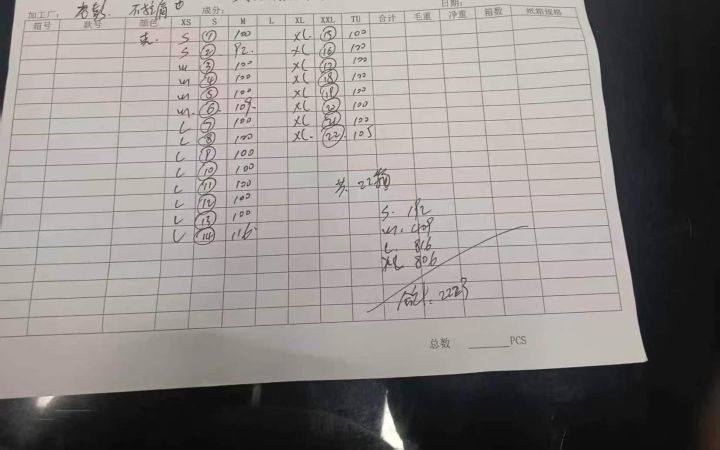 加工厂: 成分: 日期:
箱号 款号 颜色 XS S M L XL XXL TU 合计 毛重 净重 箱数 纸箱规格
S ① 100 XL ⑮ 100
S ② 92 XL ⑯ 100
M ③ 100 XL ⑰ 100
M ④ 100 XL ⑱ 100
M ⑤ 100 XL ⑲ 100
M ⑥ 109 XL ⑳ 100
L ⑦ 100 XL ㉑ 100
L ⑧ 100 XL ㉒ 105
L ⑨ 100
L ⑩ 100
L ⑪ 100 共 22箱
L ⑫ 100
L ⑬ 100 S. 192
L ⑭ 116 M. 409
L. 816
XL 806
2223
总数 PCS